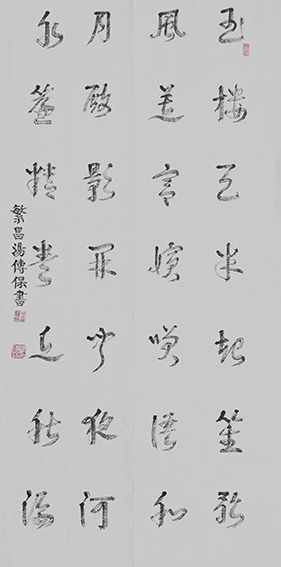 玉樓天半起笙歌
風送宮嬪笑語和
月殿影開聞夜河
水簾精卷近秋漏
繁昌湯傳保書